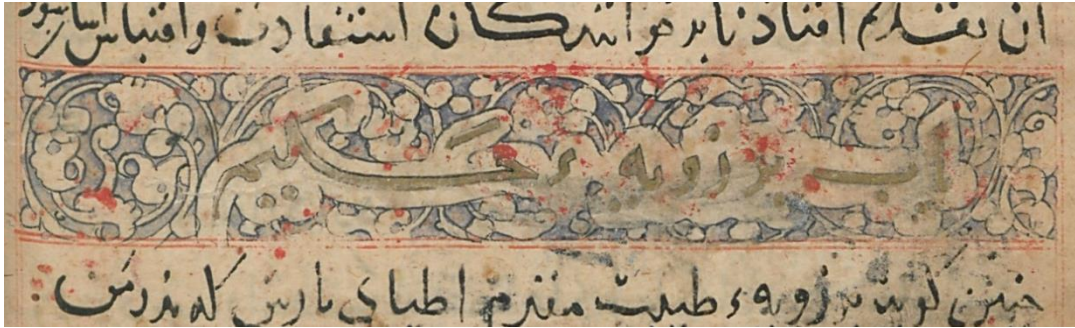 آن تقدیم افتاد تا بر خوانندگان استفادت و اقتباس آسان بود
باب برزویهٔ حکیم
چنین گوید برزویهٔ طبیب مقدم اطبای پارس که پدر من